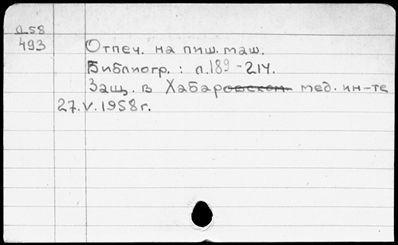 Д58
493
Отпеч. на пиш. маш.
Библиогр.: л.189-214.
Защ. в Хабаровском мед. ин-те
27.V.1958г.